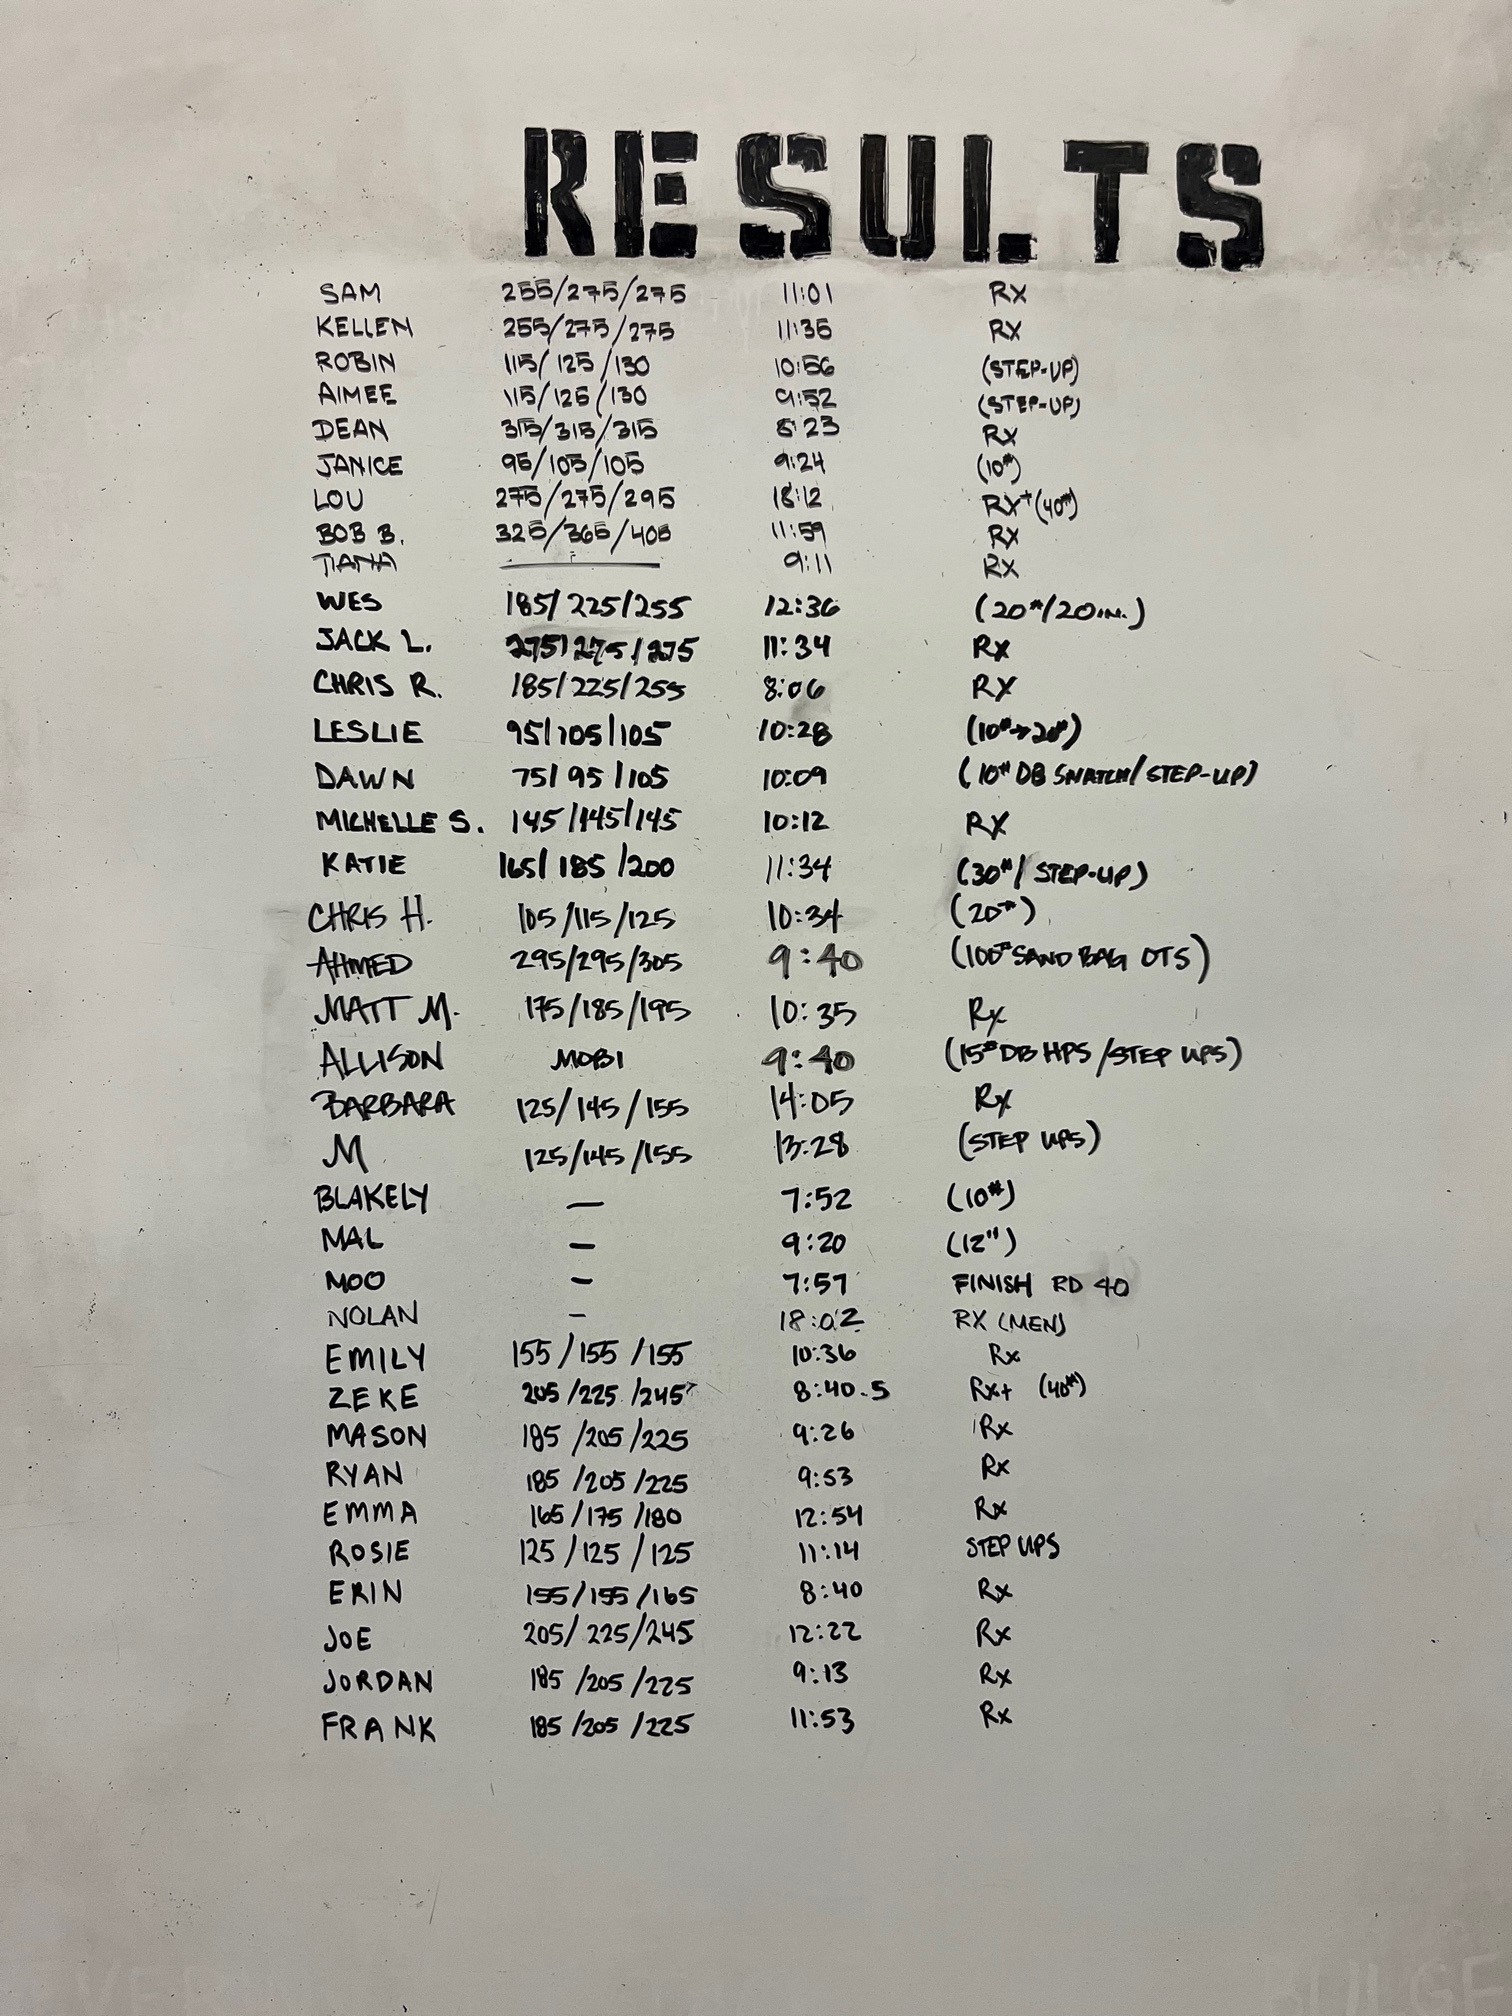 RESULTS
SAM 255/275/275 11:01 RX
KELLEN 255/275/275 11:35 RX
ROBIN 115/125/130 10:56 (STEP-UP)
AIMEE 115/125/130 9:52 (STEP-UP)
DEAN 315/315/315 8:23 RX
JANICE 95/105/105 9:24 (10#)
LOU 275/275/295 18:12 RX+(40#)
BOB B. 325/365/405 11:59 RX
TIANA — 9:11 RX
WES 185/225/255 12:36 (20#/20IN.)
JACK L. 275/275/275 11:34 RX
CHRIS R. 185/225/255 8:06 RX
LESLIE 95/105/105 10:28 (10#→20#)
DAWN 75/95/105 10:09 (10# DB SNATCH/STEP-UP)
MICHELLE S. 145/145/145 10:12 RX
KATIE 165/185/200 11:34 (30#/STEP-UP)
CHRIS H. 105/115/125 10:34 (20#)
AHMED 295/295/305 9:40 (100# SAND BAG OTS)
MATT M. 175/185/195 10:35 Rx
ALLISON MOBI 9:40 (15# DB HPS/STEP UPS)
BARBARA 125/145/155 14:05 Rx
M 125/145/155 13:28 (STEP UPS)
BLAKELY — 7:52 (10#)
MAL — 9:20 (12")
MOO — 7:57 FINISH RD 40
NOLAN — 18:02 RX (MEN)
EMILY 155/155/155 10:36 Rx
ZEKE 205/225/245 8:40.5 Rx+ (40#)
MASON 185/205/225 9:26 Rx
RYAN 185/205/225 9:53 Rx
EMMA 165/175/180 12:54 Rx
ROSIE 125/125/125 11:14 STEP UPS
ERIN 155/155/165 8:40 Rx
JOE 205/225/245 12:22 Rx
JORDAN 185/205/225 9:13 Rx
FRANK 185/205/225 11:53 Rx